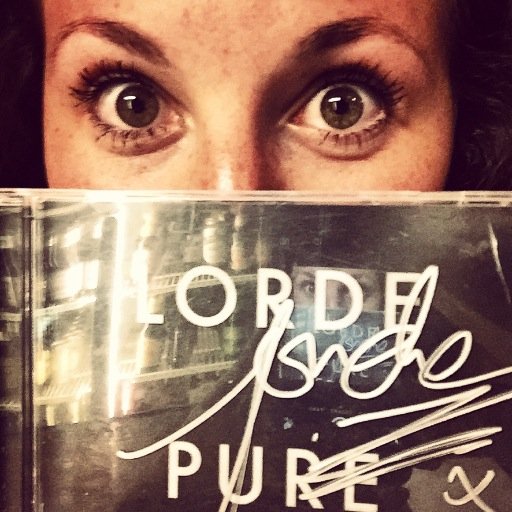 LORDE
Lorde
PURE
x